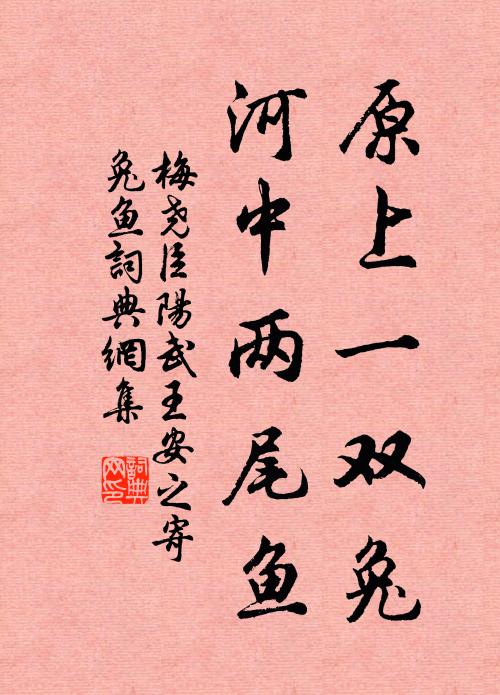 原上一双兔
河中两尾鱼
梅尧臣陽武王安之寄
兔鱼詞典網集
詞典
网印